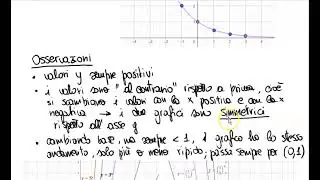 Osservazioni
• valori y sempre positivi
• i valori sono "al contrario" rispetto a prima, cioè
si scambiano i valori con la x positiva e con la x
negativa → i due grafici sono simmetrici
rispetto all'asse y
• cambiando base, ma sempre < 1, il grafico ha lo stesso
andamento, solo più o meno ripido; passa sempre per (0,1)